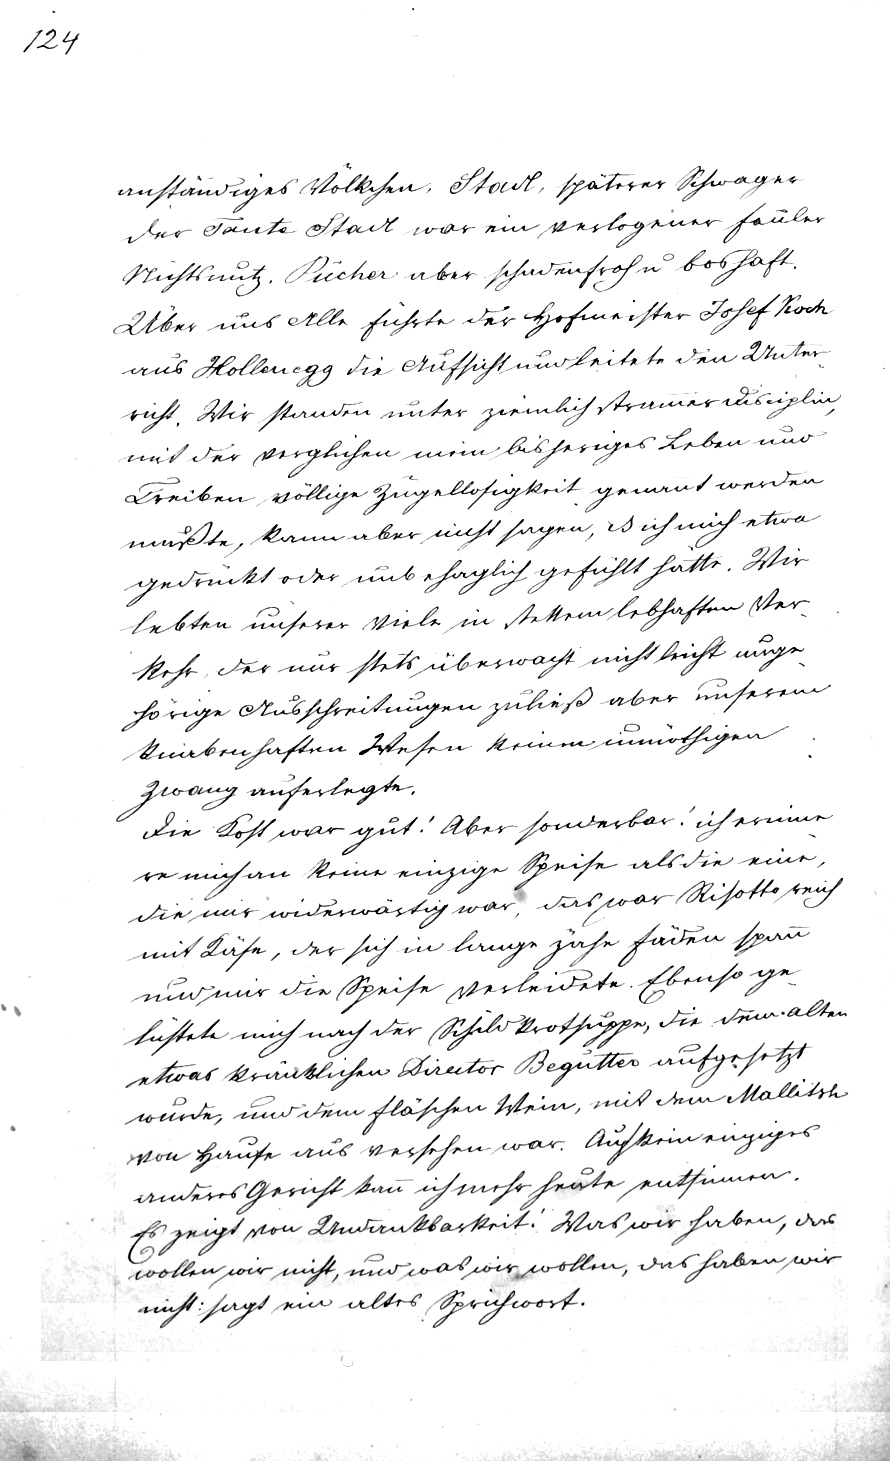 124
anständiges Völkchen. Stadl, späterer Schwager
der Tante Stadl war ein verlogener fauler
Nichtsnutz. Pücher aber schadenfroh u boshaft.
Über uns Alle führte der Hofmeister Josef Koch
aus Hollenegg die Aufsicht und leitete den Unter-
richt. Wir standen unter ziemlich strammer Disciplin,
mit der verglichen mein bisheriges Leben und
Treiben völlige Zügellosigkeit genant werden
mußte, kann aber nicht sagen, ich mich etwa
gedrückt oder unbehaglich gefühlt hätte. Wir
lebten unserer Viele in stettem lebhaften Ver-
kehr, der nur stets überwacht nicht leicht unge-
hörige Ausschreitungen zuließ aber unserem
knabenhaften Wesen keinen unnöthigen
Zwang auferlegte.
Die Kost war gut! Aber sonderbar! ich erinne
re mich an keine einzige Speise als die eine,
die mir widerwärtig war, das war Risotto reich
mit Käse, der sich in lange zähe Fäden span̄
und mir die Speise verleidete. Ebenso ge-
lüstete mich nach der Schildkrotsuppe, die dem alten
etwas kränklichen Director Begutter aufgesetzt
wurde, und dem fläschen Wein, mit dem Mallitsh
von Hause aus versehen war. Auf kein einziges
anderes Gericht kan̄ ich mehr heute entsinnen.
Es zeigt von Undankbarkeit! Was wir haben, das
wollen wir nicht, und was wir wollen, das haben wir
nicht: sagt ein altes Sprichwort.